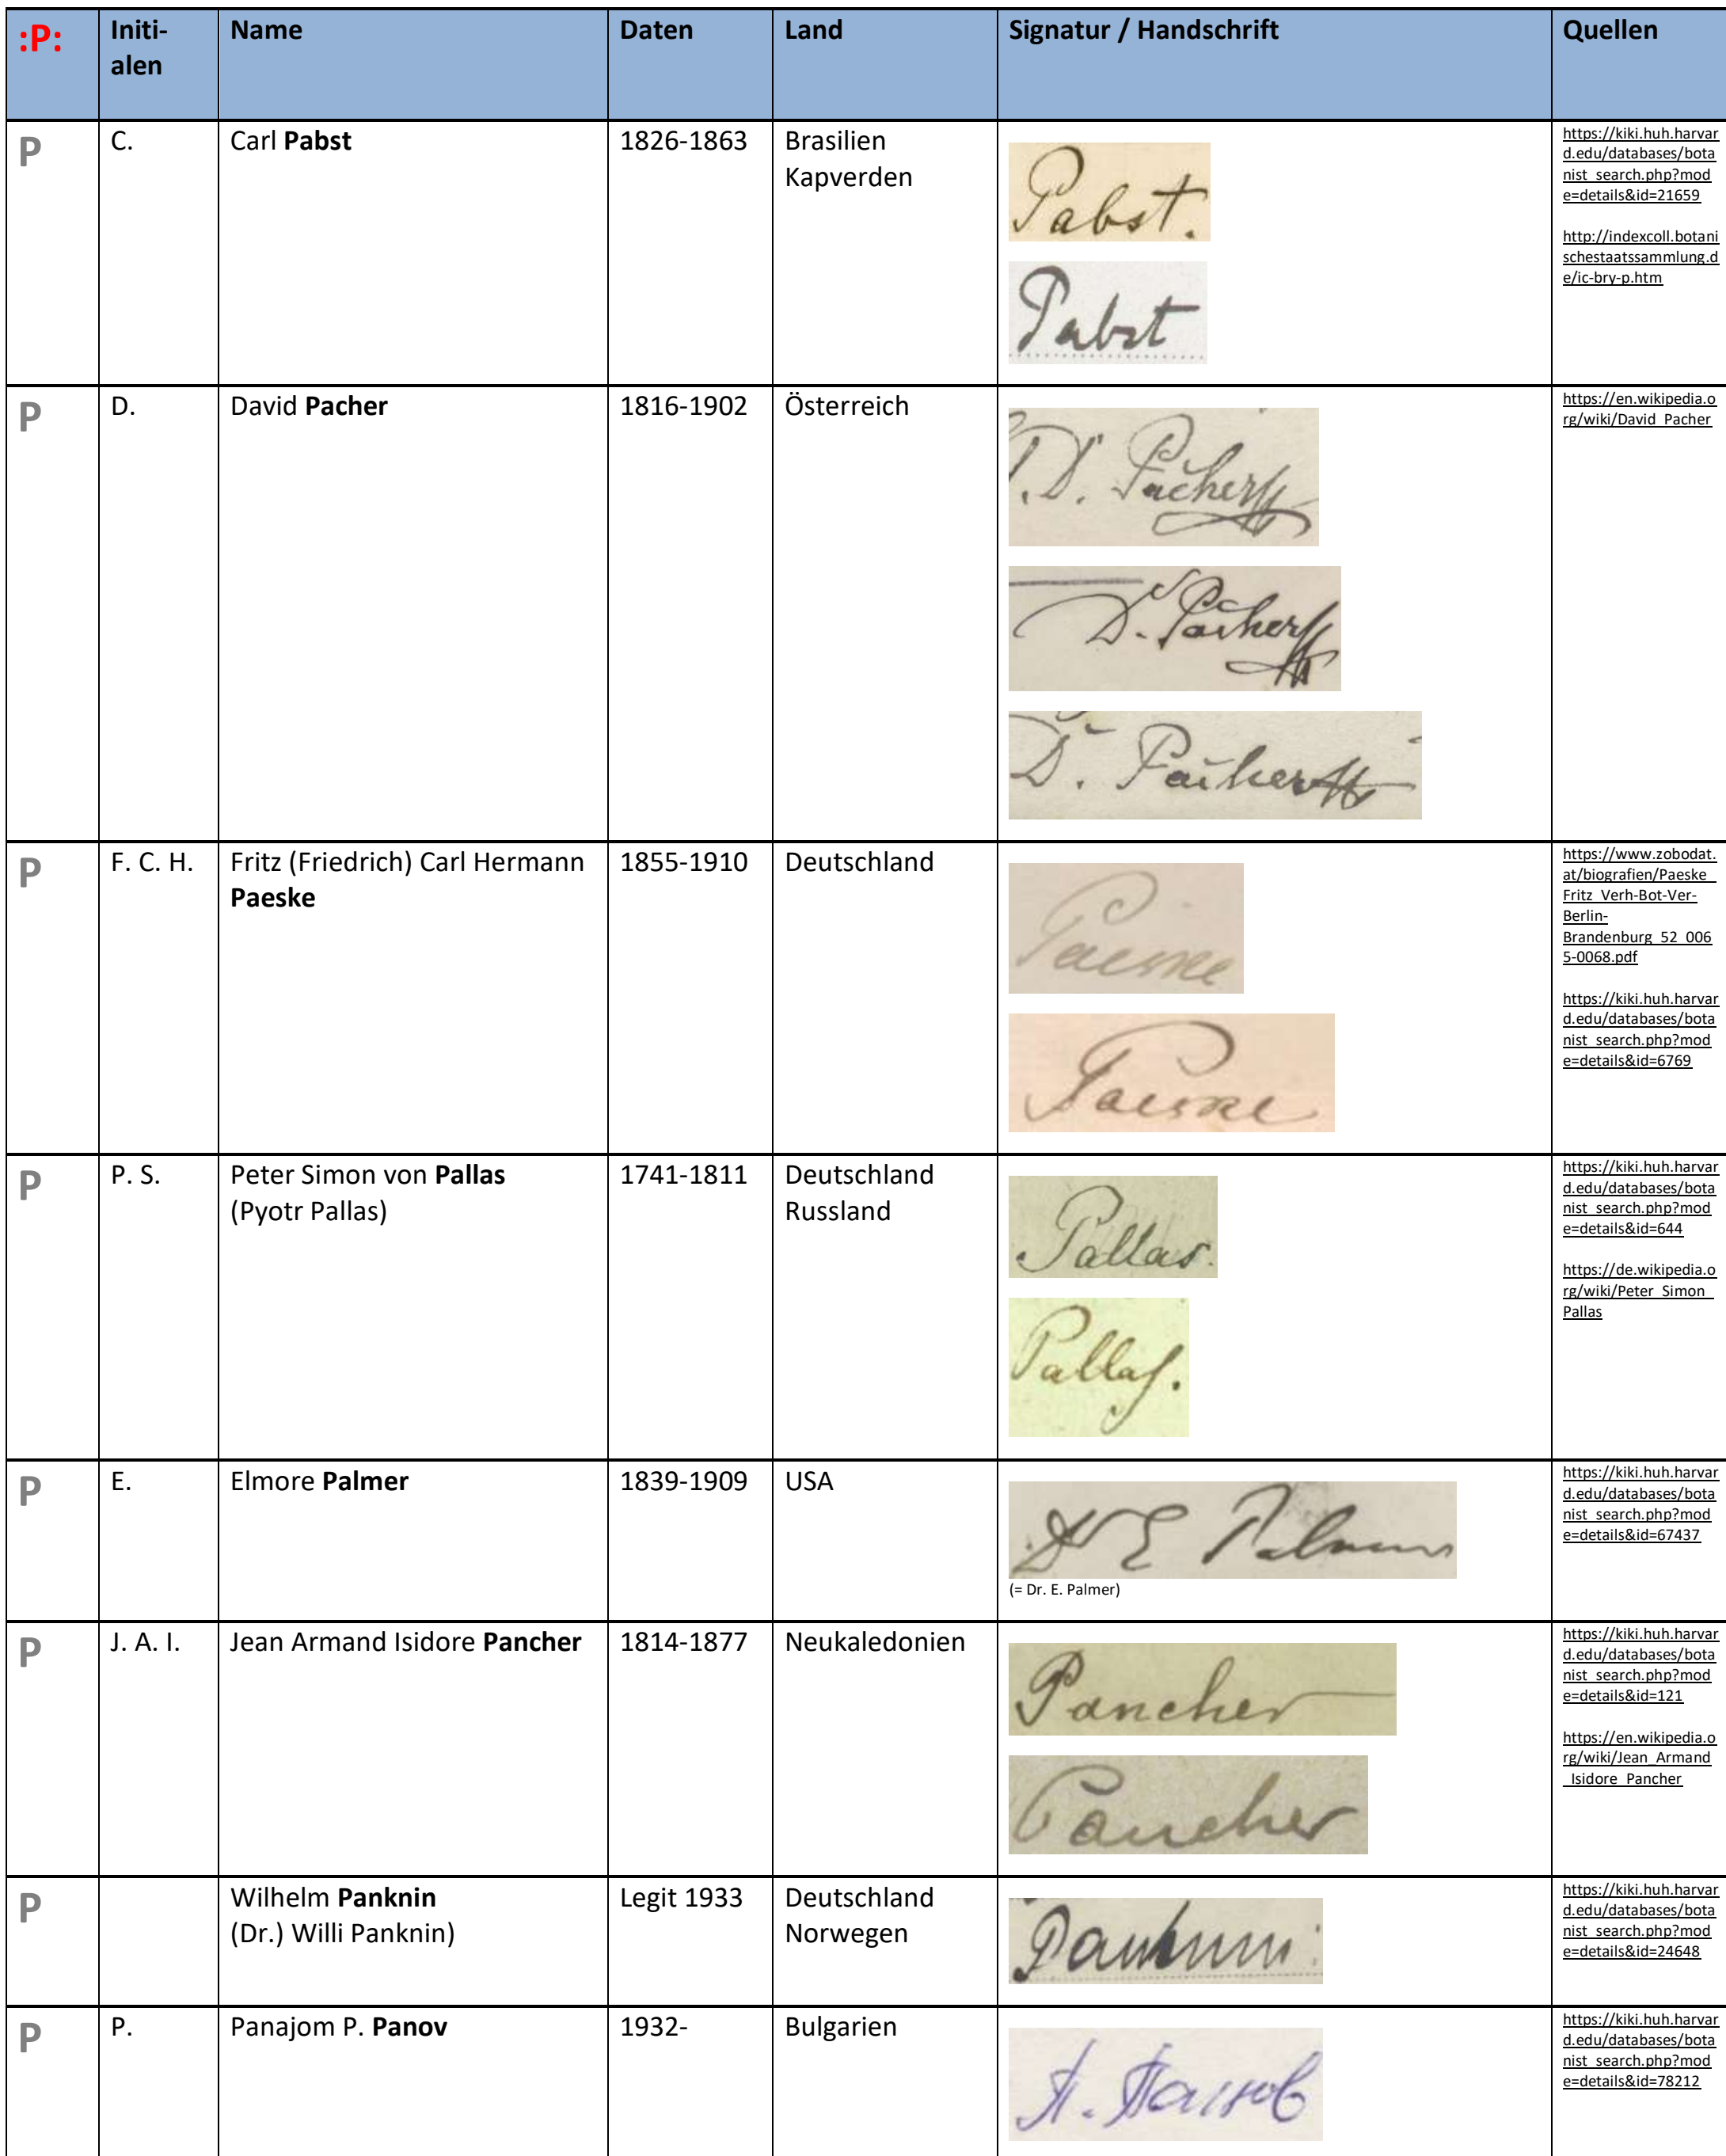 :P: Initi- Name Daten Land Signatur / Handschrift Quellen
alen
P C. Carl Pabst 1826-1863 Brasilien
Kapverden
Pabst.
Pabst
https://kiki.huh.harvar
d.edu/databases/bota
nist_search.php?mod
e=details&id=21659
http://indexcoll.botani
schestaatssammlung.d
e/ic-bry-p.htm
P D. David Pacher 1816-1902 Österreich
D. Pacher
D. Pacher
D. Pacher
https://en.wikipedia.o
rg/wiki/David_Pacher
P F. C. H. Fritz (Friedrich) Carl Hermann 1855-1910 Deutschland
Paeske
Paeske
Paeske
https://www.zobodat.
at/biografien/Paeske_
Fritz_Verh-Bot-Ver-
Berlin-
Brandenburg_52_006
5-0068.pdf
https://kiki.huh.harvar
d.edu/databases/bota
nist_search.php?mod
e=details&id=6769
P P. S. Peter Simon von Pallas 1741-1811 Deutschland
(Pyotr Pallas) Russland
Pallas.
Pallas.
https://kiki.huh.harvar
d.edu/databases/bota
nist_search.php?mod
e=details&id=644
https://de.wikipedia.o
rg/wiki/Peter_Simon_
Pallas
P E. Elmore Palmer 1839-1909 USA
Dr E Palmer
(= Dr. E. Palmer)
https://kiki.huh.harvar
d.edu/databases/bota
nist_search.php?mod
e=details&id=67437
P J. A. I. Jean Armand Isidore Pancher 1814-1877 Neukaledonien
Pancher
Pancher
https://kiki.huh.harvar
d.edu/databases/bota
nist_search.php?mod
e=details&id=121
https://en.wikipedia.o
rg/wiki/Jean_Armand
_Isidore_Pancher
P Wilhelm Panknin Legit 1933 Deutschland
(Dr.) Willi Panknin) Norwegen
Panknin.
https://kiki.huh.harvar
d.edu/databases/bota
nist_search.php?mod
e=details&id=24648
P P. Panajom P. Panov 1932- Bulgarien
П. Панов
https://kiki.huh.harvar
d.edu/databases/bota
nist_search.php?mod
e=details&id=78212